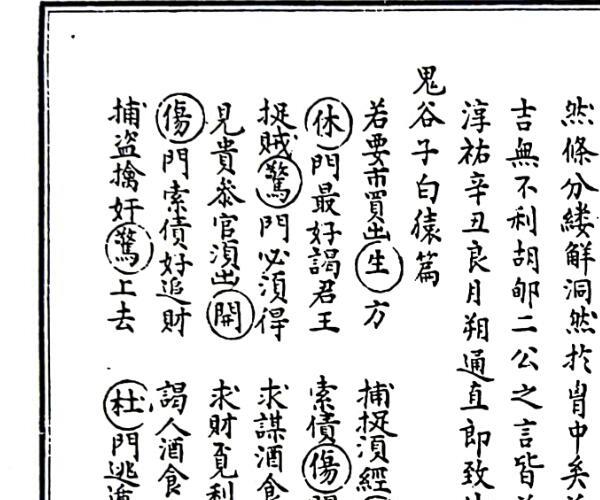 然條分縷解洞然於胷中矣
吉無不利胡郇二公之言皆
淳祐辛丑良月朔通直郎致
鬼谷子白猿篇
若要市買出生方 捕捉須經
休門最好謁君王 索債傷
捉賊驚門必須得 求謀酒食
見貴叅官須出開 求財覓利
傷門索債好追財 謁人酒食
捕盜擒奸驚上去 杜門逃